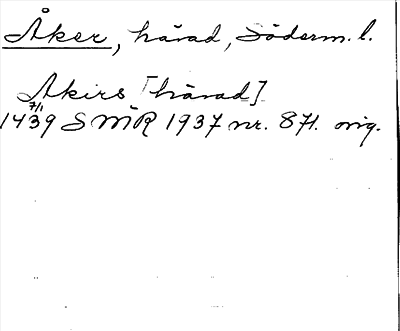 Åker, härad, Söderm. l.
Akirs [härad]
7/1
1439 SMR 1937 nr. 871. orig.